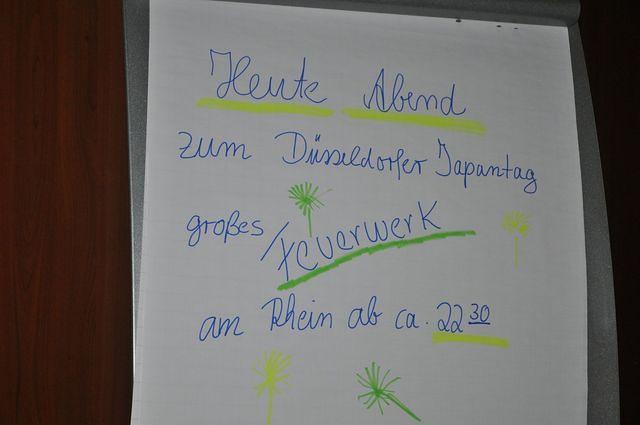 Heute Abend
zum Düsseldorfer Japantag
großes Feuerwerk
am Rhein ab ca. 22 30